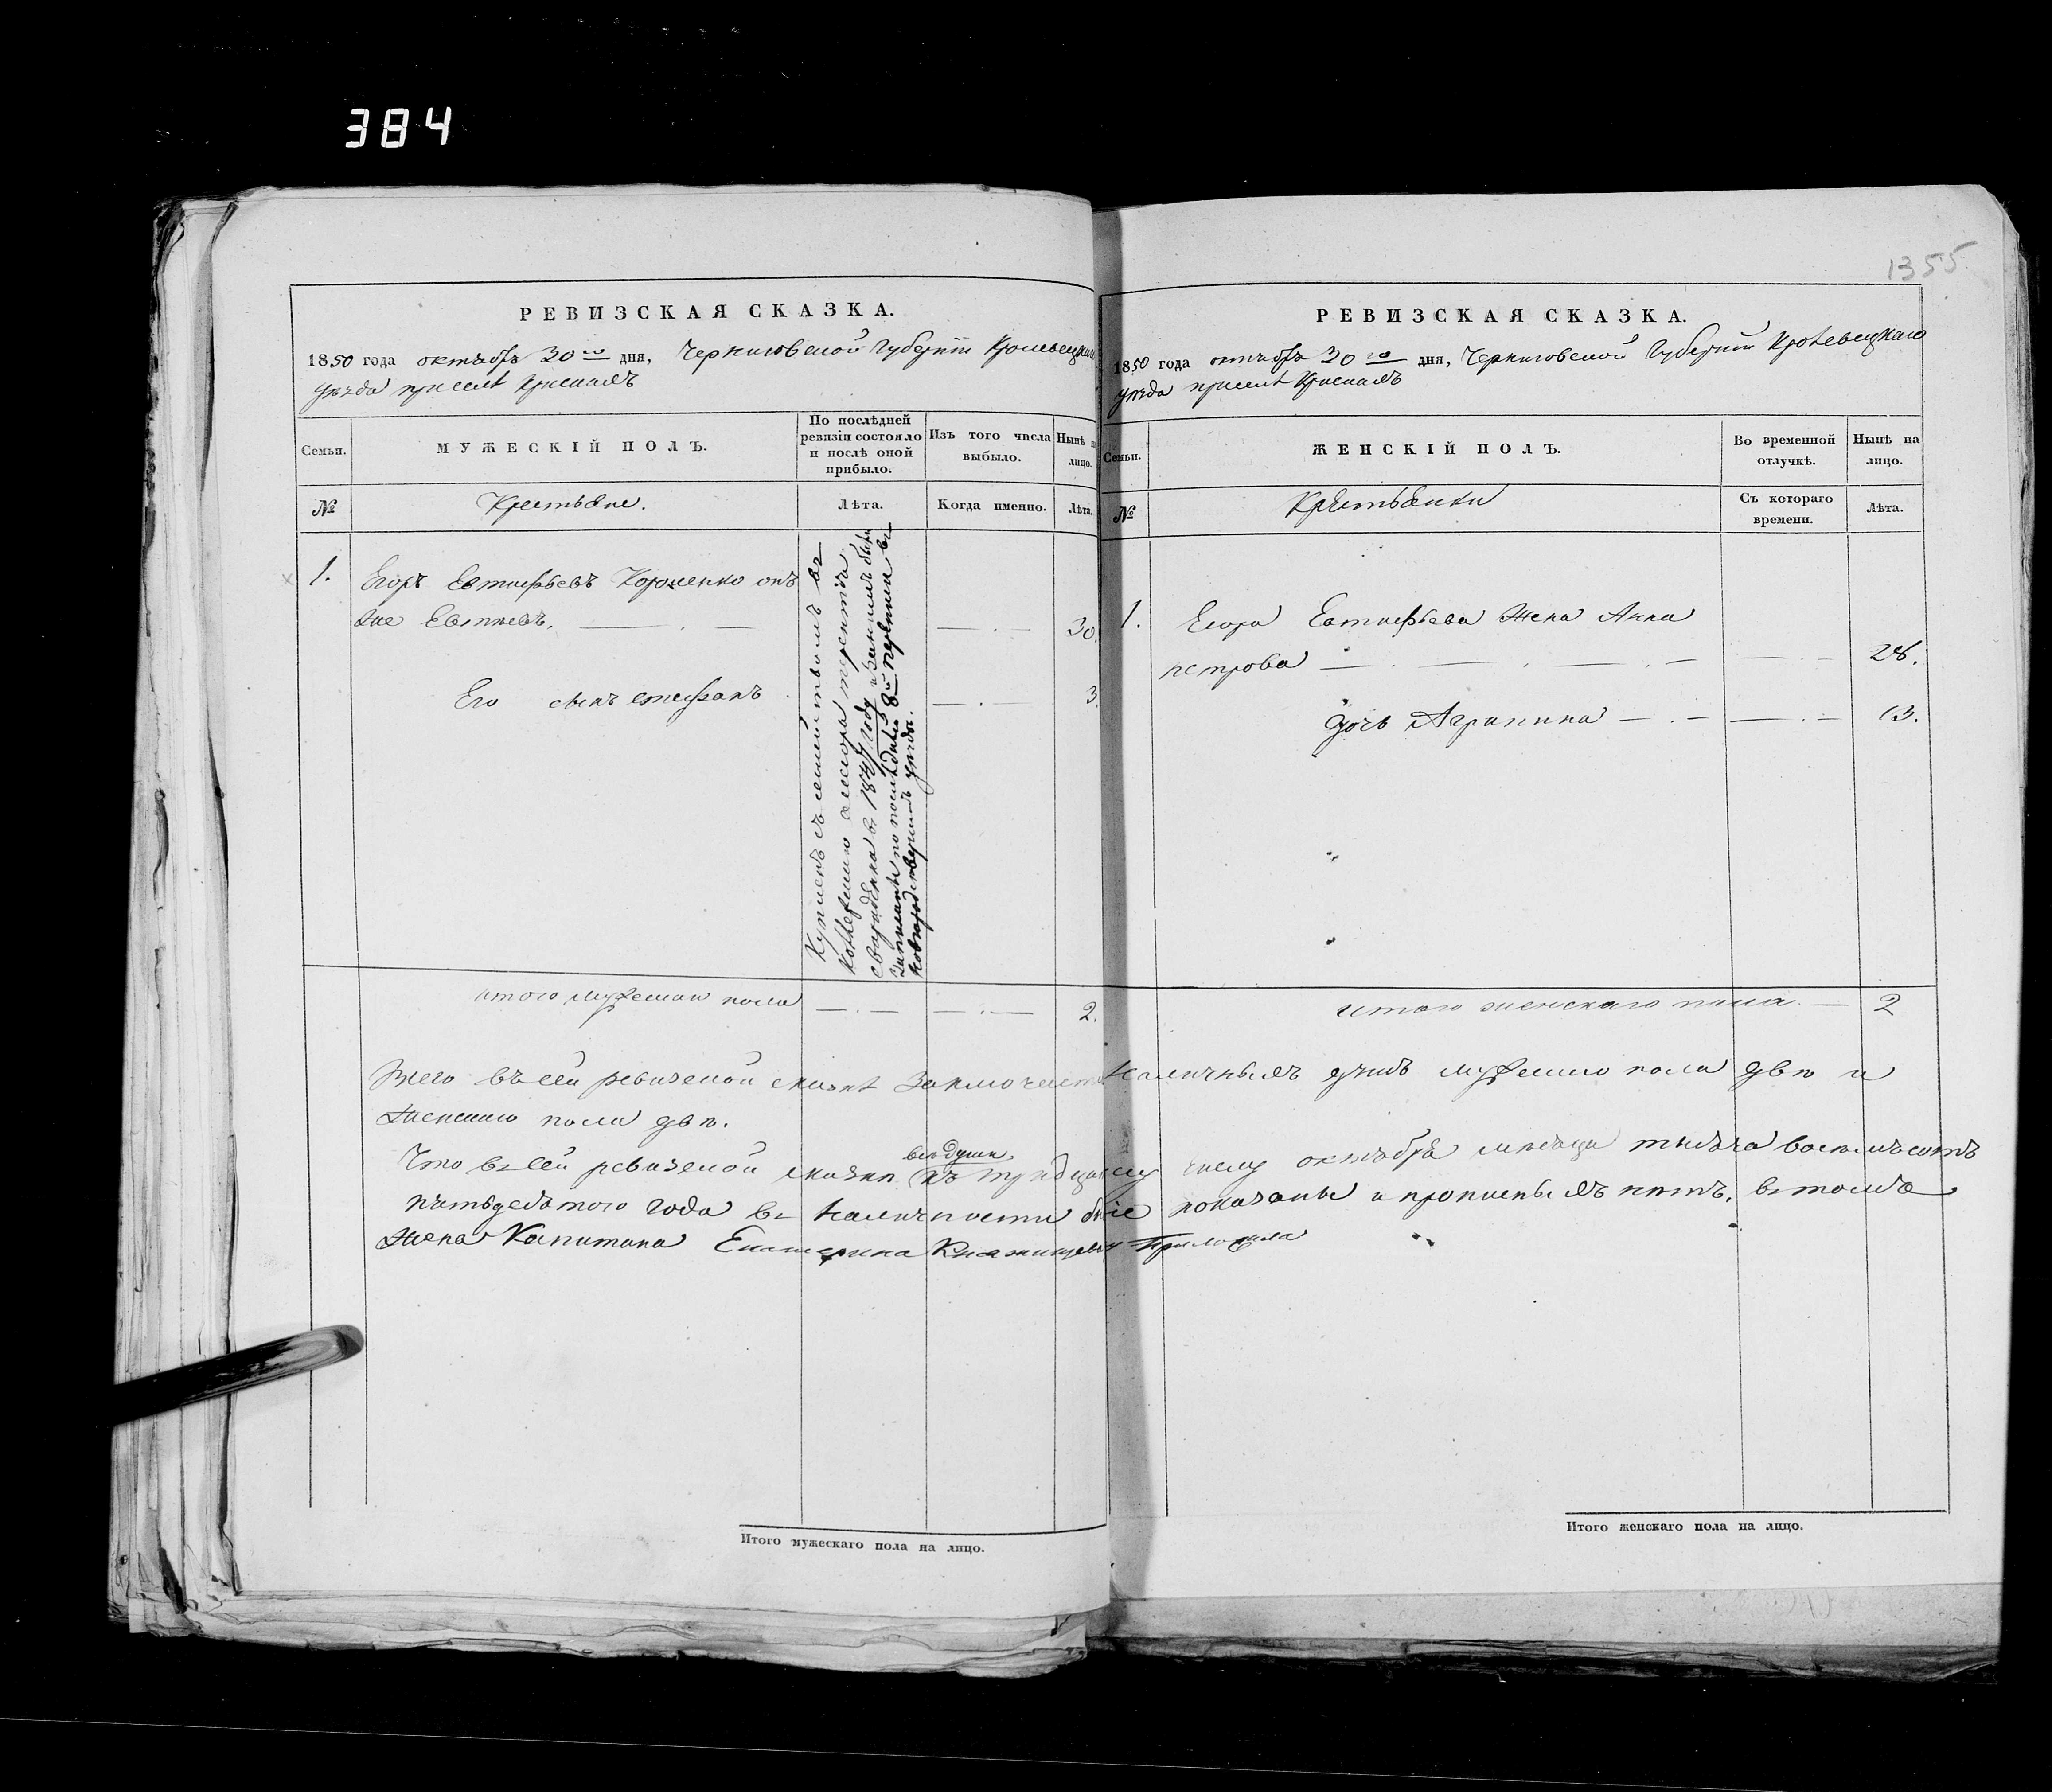 384
1355
РЕВИЗСКАЯ СКАЗКА.
1850 года октября 30го дня, Черниговской Губернiи Кролевецкаго
уезда
МУЖЕСКІЙ ПОЛЪ.
Семьи.
По послѣдней
ревизіи состояло
и послѣ оной
прибыло.
Изъ того числа
выбыло.
Нынѣ на
лицо.
№
Крестьяне.
Лѣта.
Когда именно.
Лѣта.
1.
Егоръ Евтифьевъ онъ
же
30.
Его сынъ стефанъ
3.
Купленъ съ семействомъ въ
въ 1847 году
уезда.
итого мужескаго пола
2.
РЕВИЗСКАЯ СКАЗКА.
1850 года октября 30го дня, Черниговской Губернiи Кролевецкаго
уезда
Семьи.
ЖЕНСКІЙ ПОЛЪ.
Во временной
отлучкѣ.
Нынѣ на
лицо.
№
Крестьянки
Съ котораго
времени.
Лѣта.
1.
Егора Евтифьева Жена Анна
петрова
28.
дочь Агрипина
13.
итого женскаго пола
2
Всего въ сей ревизской сказке заключается наличныхъ душъ мужеского пола две и
женскаго пола две.
все души
Что въ сей ревизской сказки къ тридцатому числу октября месяца тысяча восемьсотъ
пятьдесятого года въ наличности были показаны и прописныхъ нетъ. въ томъ
жена Капитана Екатерина приложила
Итого мужескаго пола на лицо.
Итого женскаго пола на лицо.